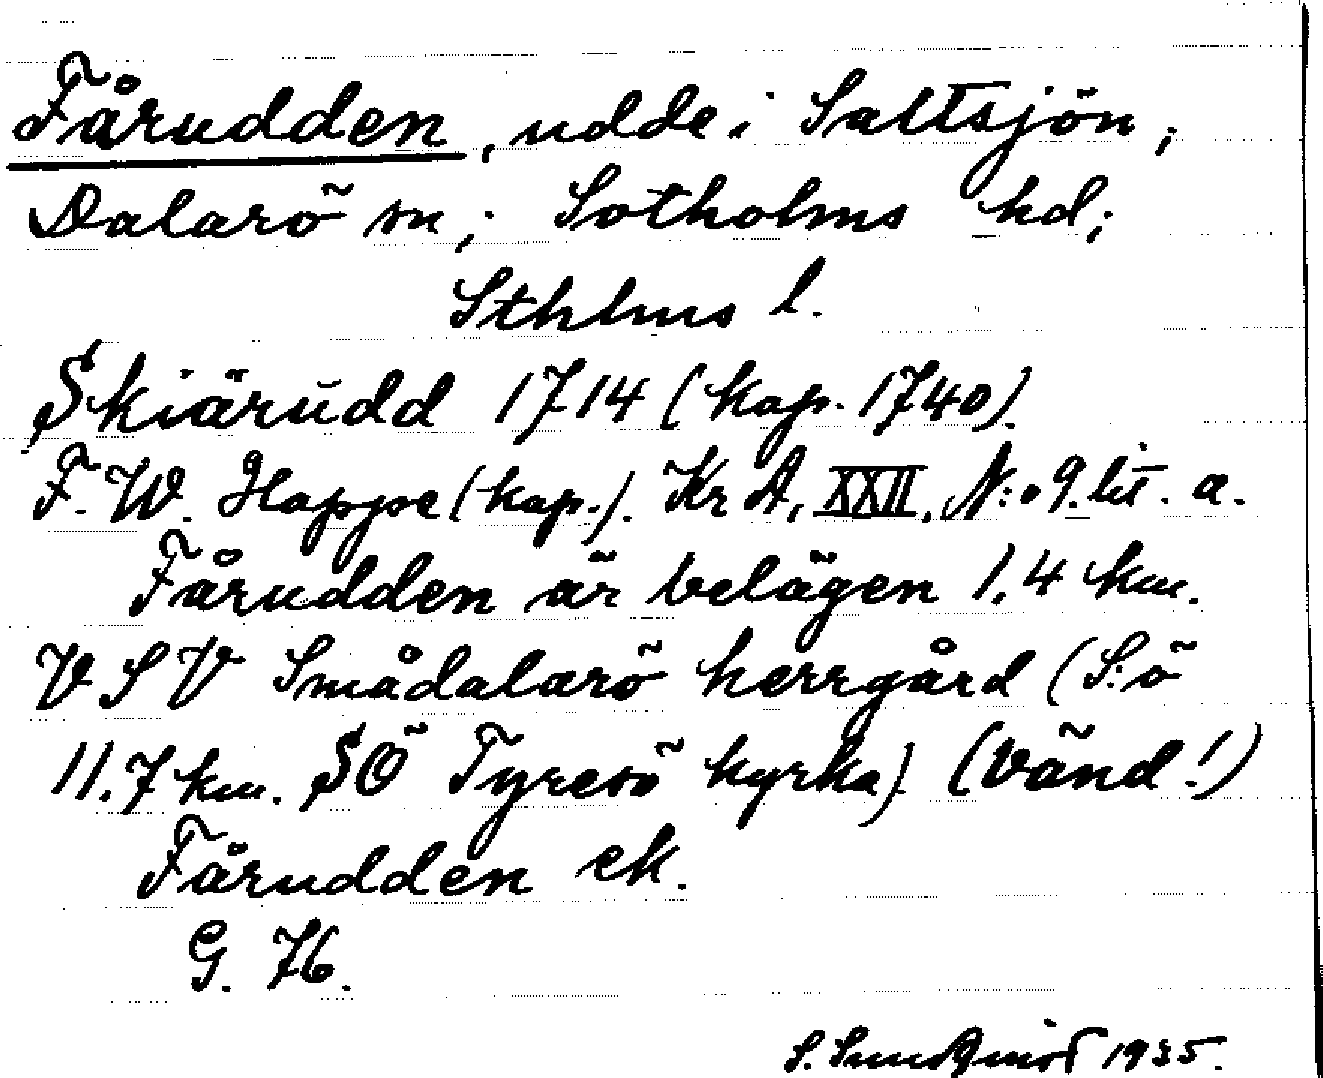 Fårudden, udde i Saltsjön,
Dalarö sn; Sotholms hd;
Sthlms l.
Skiärudd 1714 (kop. 1740).
F. W. Hoppe (kop.). Kr A, XXII, N:o 9. lit. a.
Fårudden är belägen 1,4 km.
V S V Smådalarö herrgård (S:ö
11.7 km. SÖ Tyresö kyrka) (Vänd!)
Fårudden ek.
G. 76.
S. Sundqvist 1935.